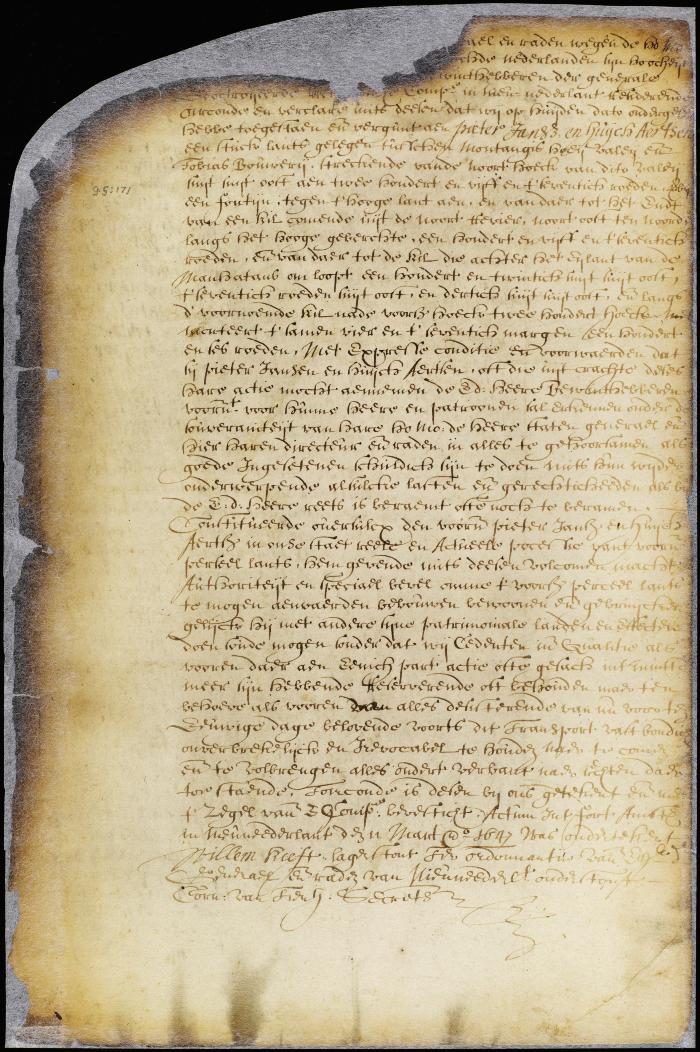 ael en raden wegen de ho: mo:
ende nederlanden sijn hoocheijt
winthebberen der generale
Geoctroijeerde Comp: in nieu nederlant residerende
oirconde en verclare mits desen dat wij op huijden dato ondergesz
hebbe toegestaen en vergunt aen pieter Jansz. en huijch Aertsen
een stuck lants gelegen tusschen Montangis valeij en
Tobias Bouwerij, streckende vande noort hoeck van dito valeij
suijt suijt oost aen twee hondert en vijff en t'seventich roeden, bij
een fontijn, tegen t hooge lant aen, en van daer tot het Eijnde
van een kil comende uijt de noort Revier, noort oost ten noorden
langs het hooge geberchte, een hondert en vijff en t'seventich
roeden, en van daer tot de kil die achter het eijlant van de
Manhatans om loopt een hondert en twintich suijt suijt oost,
t'seventich roeden suijt oost, en dertich suijt suijt oost, en langs
d' voornoemde kil na de voorsz hoeck twee hondert
t' samen vier en t'seventich margen een hondert
en ses roeden, Met Expresse conditie en voorwaerden dat
sij pieter Jansen en Huijch Aertsen, ost die uijt crachte deses
hare actie mocht aennemen de Ed: Heere Bewinthebberen
voornt voor hunne Heere en patroonen sal erkennen onder de
souveraniteijt van hare ho: mo: de heere staten generael en
hier haren directeur en raden in alles te gehoorsamen als
goede Ingesetenen schuldich sijn te doen mits hun wijders
onderwerpende alsulcke lasten en gerechticheeden als bij
de E.d: Heere reets is beraemt ofte noch te beramen.
Constitueerde oversulcx den voorn pieter Jansz. en Huijch
Aertsz in onse staet reele en Actueele possessie vant voorn
perceel lants, hem gevende mits desen volcomen macht
Authoriteijt en speciael bevel omme t' voorsz perceel lants
te mogen aenvaerden bebouwen bewoonen en gebruijcken
gelijck hij met andere sijne patrimoniale landen en effecten
doen soude mogen sonder dat wij Cedenten in Qualite als
vooren daer aen Eenich part actie ofte gesach int minste
meer sijn hebbende Reserverende ost behouden maer ten
behoeve als vooren van alles desisterende van nu voor ten
Eeuwige dage belovende voorts dit Transport vast bondich
onverbrekelijck en Irevocabel te houden naer te comen
en te volbrengen alles onder verbant naer rechten daer
toe staende, Toirconde is desen bij ons geteekent en met
t' Zegel van E Comp: bevesticht. Actum Int fort Amst:
in Nieuneederlant den 11 Mart Ao 1647 Was onderteekent
Willem Kieft. lager stont Ter ordonnantie van
Generael en raden van Nieuneederlt onderstont
Corn: van Tienh: Secrets